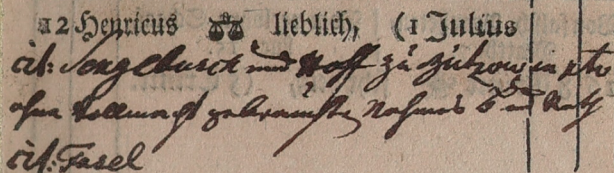 12 Henricus ♎ lieblich, (1 Julius
cit: Sengebusch und Hoff zu Bützow in pto
ohne Vollmacht gebrauchten Nahmens B. und Rath
cit: Fasel